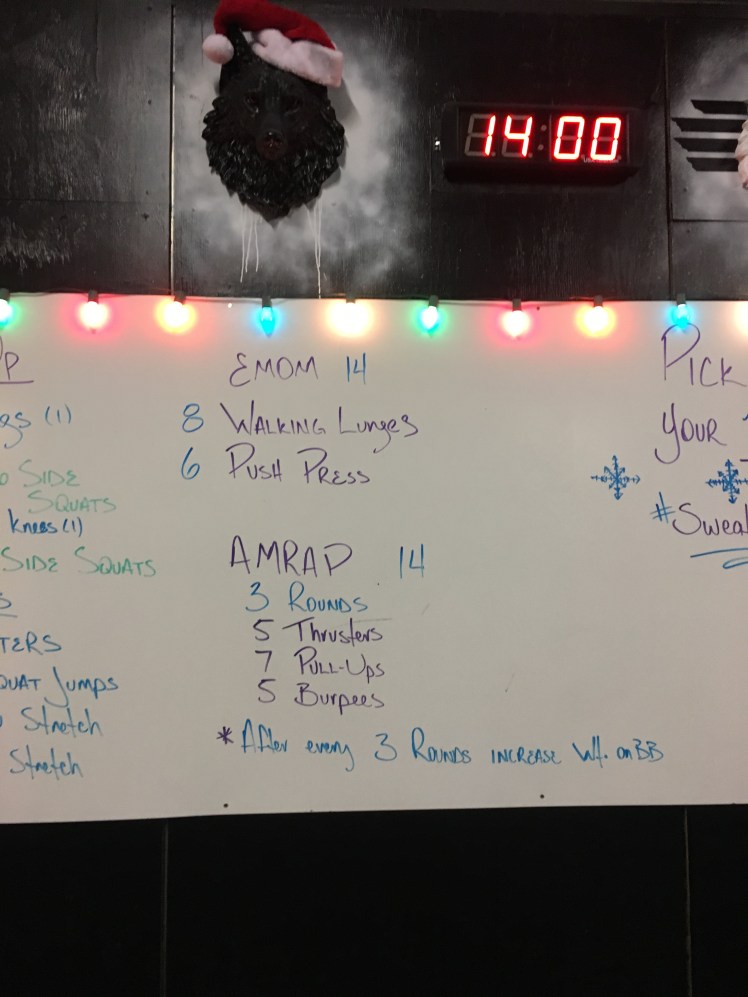 14:00
EMOM 14
8 WALKING Lunges
6 PUSH PRESS
AMRAP 14
3 ROUNDS
5 Thrusters
7 PULL-UPS
5 Burpees
* After every 3 ROUNDS INCREASE Wt. on BB
(1)
SIDE
SQUATS
knees (1)
SIDE SQUATS
Jumps
Stretch
Stretch
PICK
YOUR